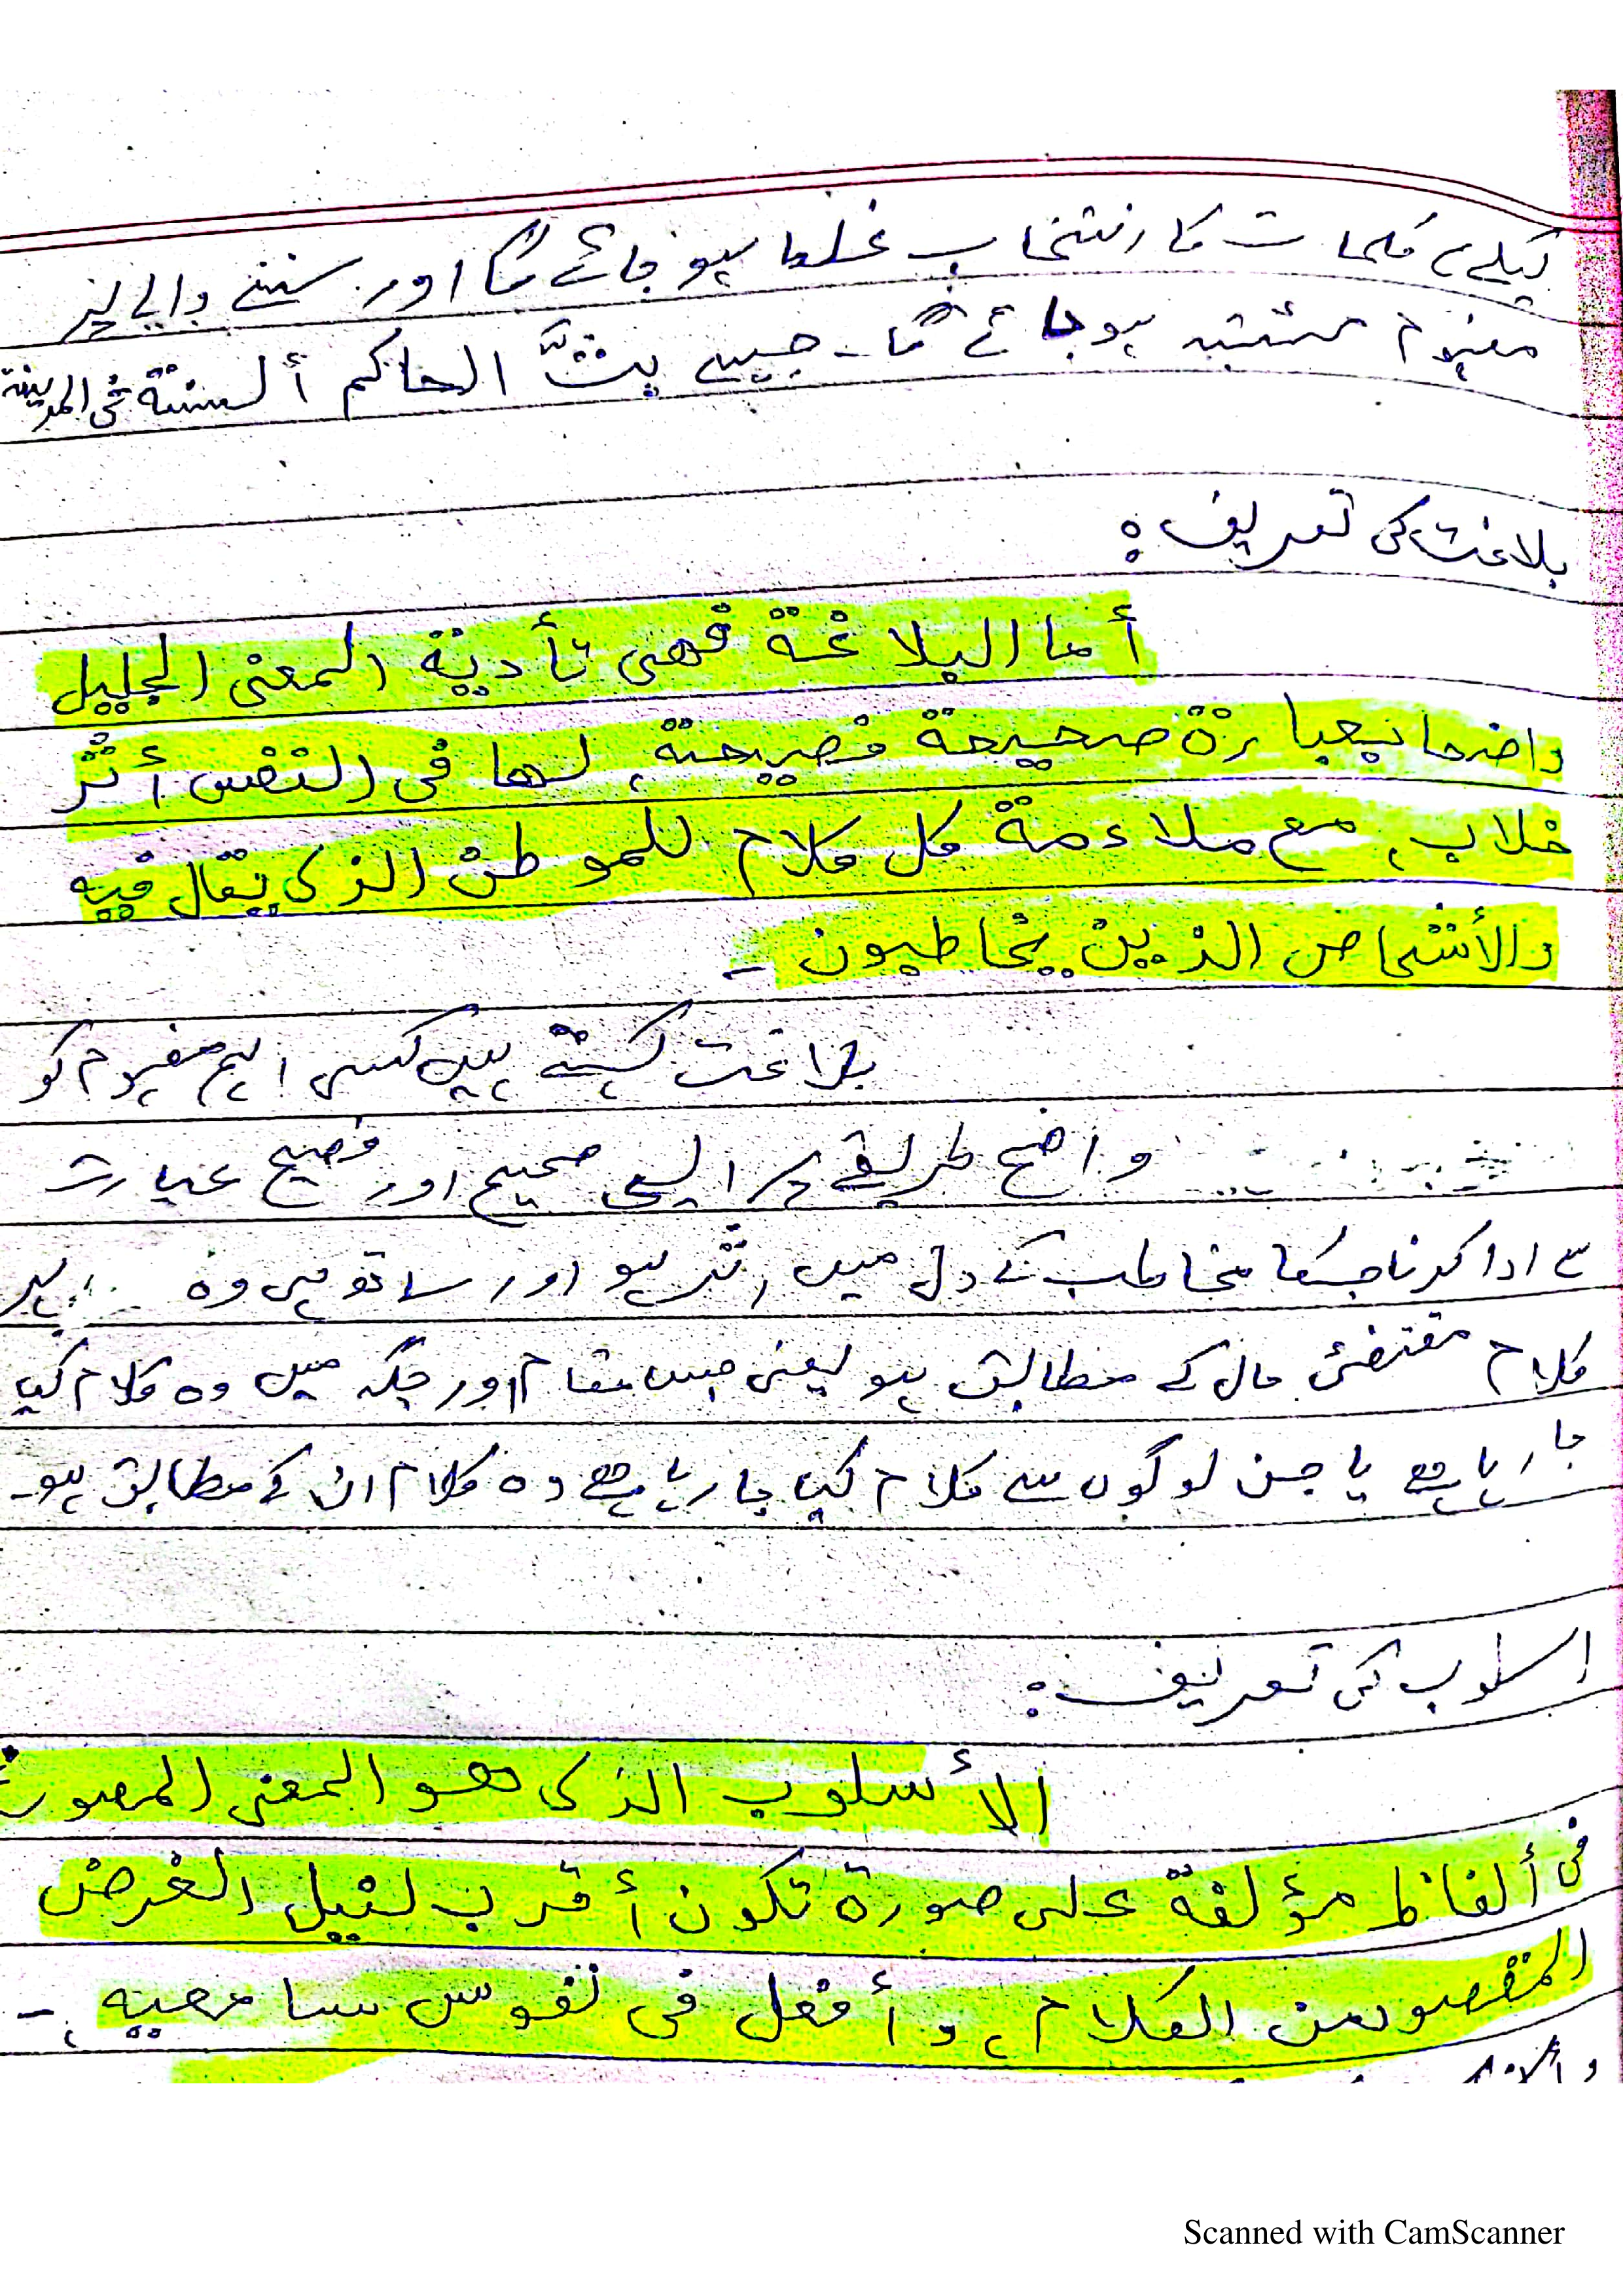 کیلئے کلمات کا انتخاب غلط ہو جائے گا اور سننے والے پر
مفہوم مشتبہ ہو جائے گا۔ جیسے بثَّ الحاکم ألسنتة فی المدینة
بلاغت کی تعریف:
أما البلاغة فهی تأدیة المعنی الجلیل
واضحا بعبارة صحیحة فصیحة، لها فی النفس أثر
خلاب، مع ملاءمة کل کلام للموطن الذی یقال فیه
والأشخاص الذین یخاطبون -
بلاغت کہتے ہیں کسی اہم مفہوم کو
واضح طریقے پر ایسی صحیح اور فصیح عبارت
سے ادا کرنا جسکا مخاطب کے دل میں اثر ہو اور ساتھ ہی وہ
کلام مقتضئ حال کے مطابق ہو یعنی جس مقام اور جگہ میں وہ کلام کیا
جا رہا ہے یا جن لوگوں سے کلام کیا جا رہا ہے وہ کلام ان کے مطابق ہو۔
اسلوب کی تعریف:
الأسلوب الذی هو المعنی المصوغ
فی ألفاظ مؤلفة علی صورة تکون أقرب لنیل الغرض
المقصود من الکلام، وأفعل فی نفوس سامعیه، -
Scanned with CamScanner